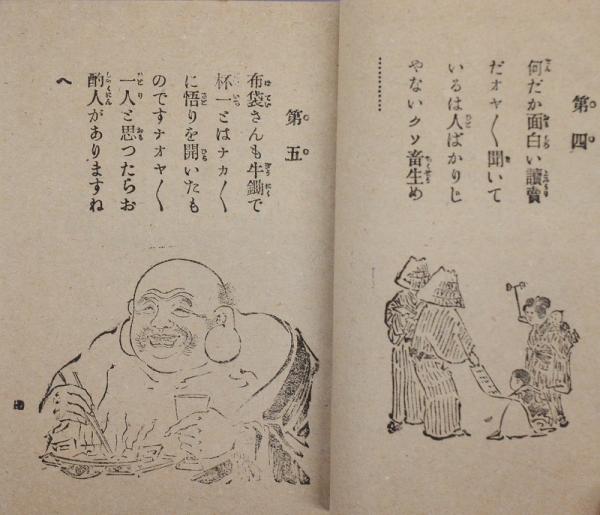 第四
何だか面白い讀賣
だオヤ〳〵聞いて
いるは人ばかりじ
やないクソ畜生め
…………
第五
布袋さんも牛鋤で
杯一とはナカ〳〵
に悟りを開いたも
のですナオヤ〳〵
一人と思つたらお
酌人がありますね
へ